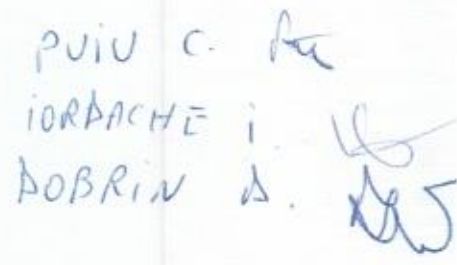 PUIU C.
IORDACHE I.
DOBRIN D.